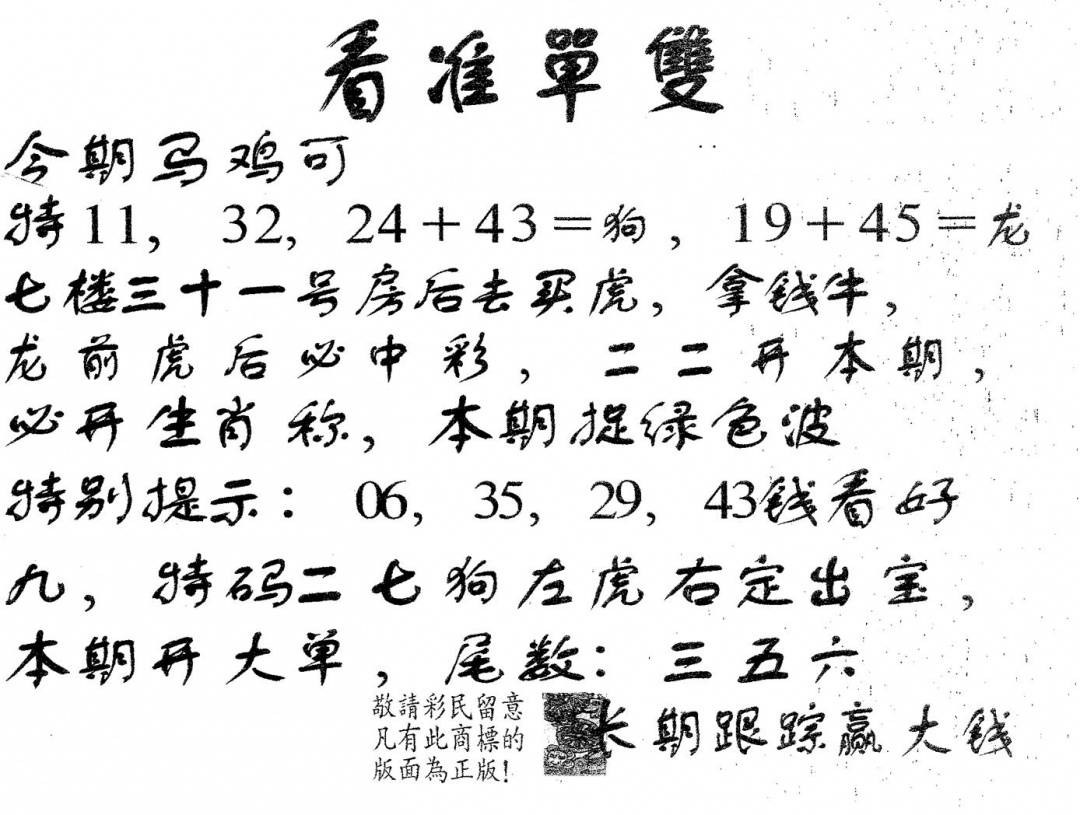 看准單雙
今期马鸡可
特11, 32, 24+43=狗, 19+45=龙
七楼三十一号房后去买虎, 拿钱牛,
龙前虎后必中彩, 二二开本期,
必开生肖称, 本期捉绿色波
特别提示: 06, 35, 29, 43钱看好
九, 特码二七狗左虎右定出宝,
本期开大单, 尾数: 三五六
敬請彩民留意
凡有此商標的
版面為正版!
长期跟踪赢大钱